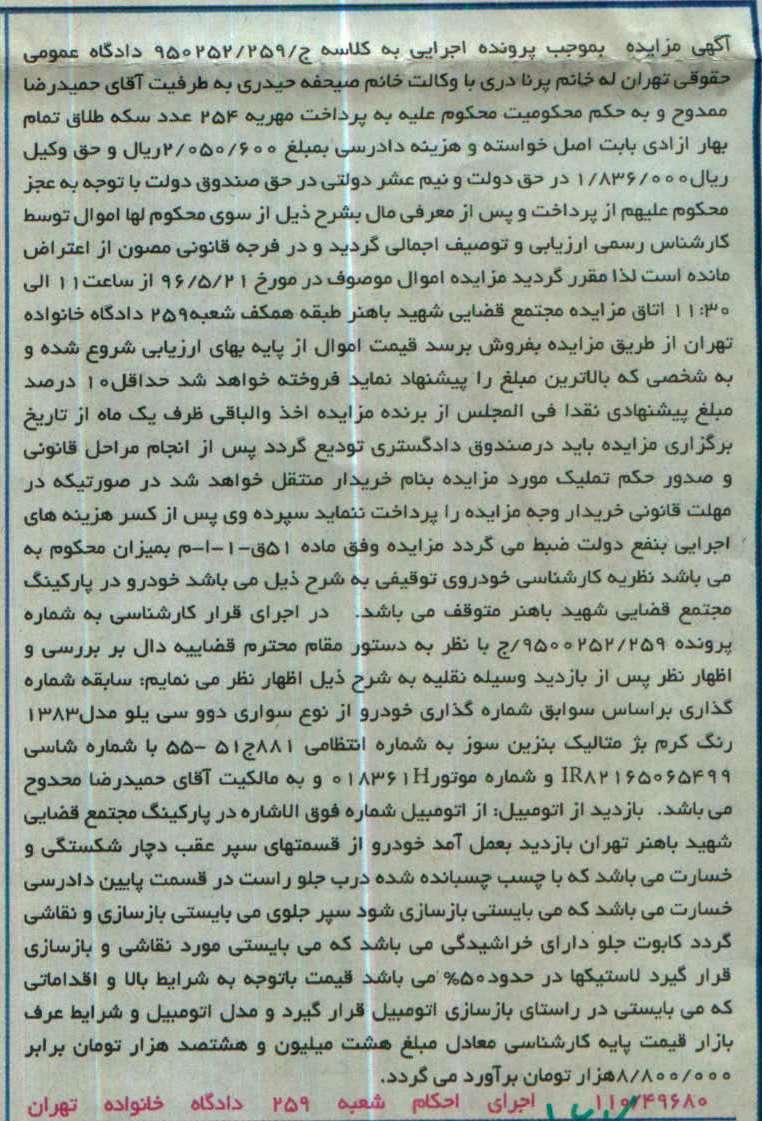 آگهی مزایده  بموجب پرونده اجرایی به کلاسه ج/۹۵۰۲۵۲/۲۵۹ دادگاه عمومی
حقوقی تهران له خانم پرنا دری با وکالت خانم صیحفه حیدری به طرفیت آقای حمیدرضا
ممدوح و به حکم محکومیت محکوم علیه به پرداخت مهریه ۲۵۴ عدد سکه طلاق تمام
بهار ازادی بابت اصل خواسته و هزینه دادرسی بمبلغ ۲/۰۵۰/۶۰۰ریال و حق وکیل
ریال۱/۸۳۶/۰۰۰ در حق دولت و نیم عشر دولتی در حق صندوق دولت با توجه به عجز
محکوم علیهم از پرداخت و پس از معرفی مال بشرح ذیل از سوی محکوم لها اموال توسط
کارشناس رسمی ارزیابی و توصیف اجمالی گردید و در فرجه قانونی مصون از اعتراض
مانده است لذا مقرر گردید مزایده اموال موصوف در مورخ ۹۶/۵/۲۱ از ساعت۱۱ الی
۱۱:۳۰ اتاق مزایده مجتمع قضایی شهید باهنر طبقه همکف شعبه۲۵۹ دادگاه خانواده
تهران از طریق مزایده بفروش برسد قیمت اموال از پایه بهای ارزیابی شروع شده و
به شخصی که بالاترین مبلغ را پیشنهاد نماید فروخته خواهد شد حداقل۱۰ درصد
مبلغ پیشنهادی نقدا فی المجلس از برنده مزایده اخذ والباقی ظرف یک ماه از تاریخ
برگزاری مزایده باید درصندوق دادگستری تودیع گردد پس از انجام مراحل قانونی
و صدور حکم تملیک مورد مزایده بنام خریدار منتقل خواهد شد در صورتیکه در
مهلت قانونی خریدار وجه مزایده را پرداخت ننماید سپرده وی پس از کسر هزینه های
اجرایی بنفع دولت ضبط می گردد مزایده وفق ماده ۵۱ق-۱-ا-م بمیزان محکوم به
می باشد نظریه کارشناسی خودروی توقیفی به شرح ذیل می باشد خودرو در پارکینگ
مجتمع قضایی شهید باهنر متوقف می باشد.  در اجرای قرار کارشناسی به شماره
پرونده ۹۵۰۰۲۵۲/۲۵۹/ج با نظر به دستور مقام محترم قضاییه دال بر بررسی و
اظهار نظر پس از بازدید وسیله نقلیه به شرح ذیل اظهار نظر می نمایم: سابقه شماره
گذاری براساس سوابق شماره گذاری خودرو از نوع سواری دوو سی یلو مدل۱۳۸۳
رنگ کرم بژ متالیک بنزین سوز به شماره انتظامی ۸۸۱ج۵۱ -۵۵ با شماره شاسی
IR۸۲۱۶۵۰۶۵۴۹۹ و شماره موتور۰۱۸۳۶۱H و به مالکیت آقای حمیدرضا محدوح
می باشد.  بازدید از اتومبیل: از اتومبیل شماره فوق الاشاره در پارکینگ مجتمع قضایی
شهید باهنر تهران بازدید بعمل آمد خودرو از قسمتهای سپر عقب دچار شکستگی و
خسارت می باشد که با چسب چسبانده شده درب جلو راست در قسمت پایین دادرسی
خسارت می باشد که می بایستی بازسازی شود سپر جلوی می بایستی بازسازی و نقاشی
گردد کابوت جلو دارای خراشیدگی می باشد که می بایستی مورد نقاشی و بازسازی
قرار گیرد لاستیکها در حدود۵۰% می باشد قیمت باتوجه به شرایط بالا و اقداماتی
که می بایستی در راستای بازسازی اتومبیل قرار گیرد و مدل اتومبیل و شرایط عرف
بازار قیمت پایه کارشناسی معادل مبلغ هشت میلیون و هشتصد هزار تومان برابر
۸/۸۰۰/۰۰۰هزار تومان برآورد می گردد.
۱۱۰/۴۹۶۸۰  اجرای احکام شعبه ۲۵۹ دادگاه خانواده تهران